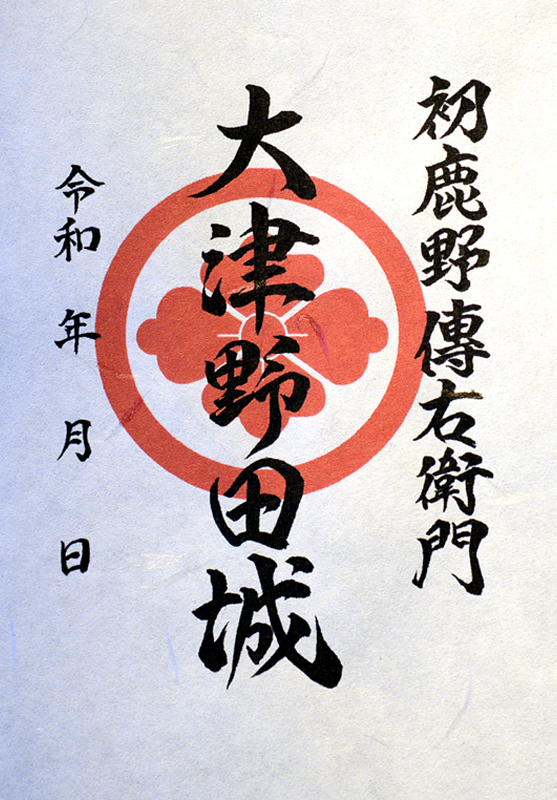 初鹿野傳右衛門
大津野田城
令和 年 月 日